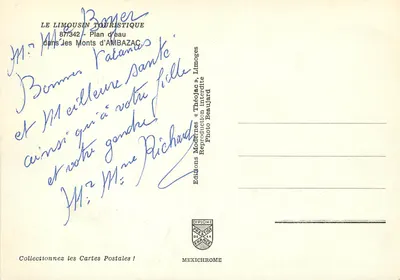 LE LIMOUSIN TOURISTIQUE
87/342 - Plan d'eau
dans les Monts d'AMBAZAC
Mr Me Boyer
Bonnes Vacances
et Meilleure santé
ainsi qu'à votre fille
et votre gendre!
Mr Mme Richard
Editions Modernes « Théojac », Limoges
Reproduction interdite
Photo Beaujard
Collectionnez les Cartes Postales !
MEXICHROME